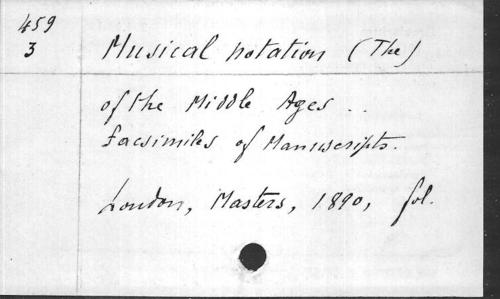 459
3
Musical notation (The)
of the Middle Ages ..
Facsimiles of Manuscripts.
London, Masters, 1890, fol.